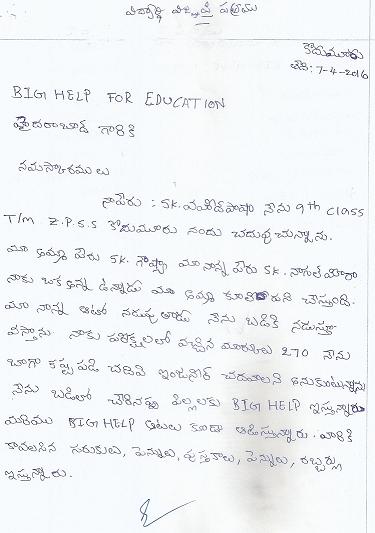 విద్యార్థి విజ్ఞప్తి పత్రము
కోదుమూరు
తేది: 7-4-2016
BIG HELP FOR EDUCATION
హైదరాబాడ్ గారికి
నమస్కారములు
నాపేరు : SK. వహీద్‌పాషా నేను 9th Class
T/M Z.P.S.S కోదుమూరు నందు చదువుచున్నాను.
మా అమ్మ పేరు SK. మా నాన్న పేరు SK. నాగుల్ మీరా
నాకు ఒక అన్న ఉన్నాడు మా అమ్మ కూలి పని చేస్తుంది.
మా నాన్న ఆటో నడుపుతాడు నేను బడికి నడుస్తూ
వస్తాను. నాకు పరిక్షలలో వచ్చిన మారకులు 270 నేను
బాగా కష్టపడి చదివి ఇంజనీర్ చదవాలని అనుకుంటున్నాను
నేను బడిలో చేరినప్పు పిల్లలకు BIG HELP ఇస్తున్నారు
మరియు BIG HELP ఆటలు కూడా ఆడిస్తున్నారు. వారికి
కావలసిన సరుకులు, పెన్నులు, పుస్తకాలు, పెన్నులు, రబ్బర్లు
ఇస్తున్నారు.